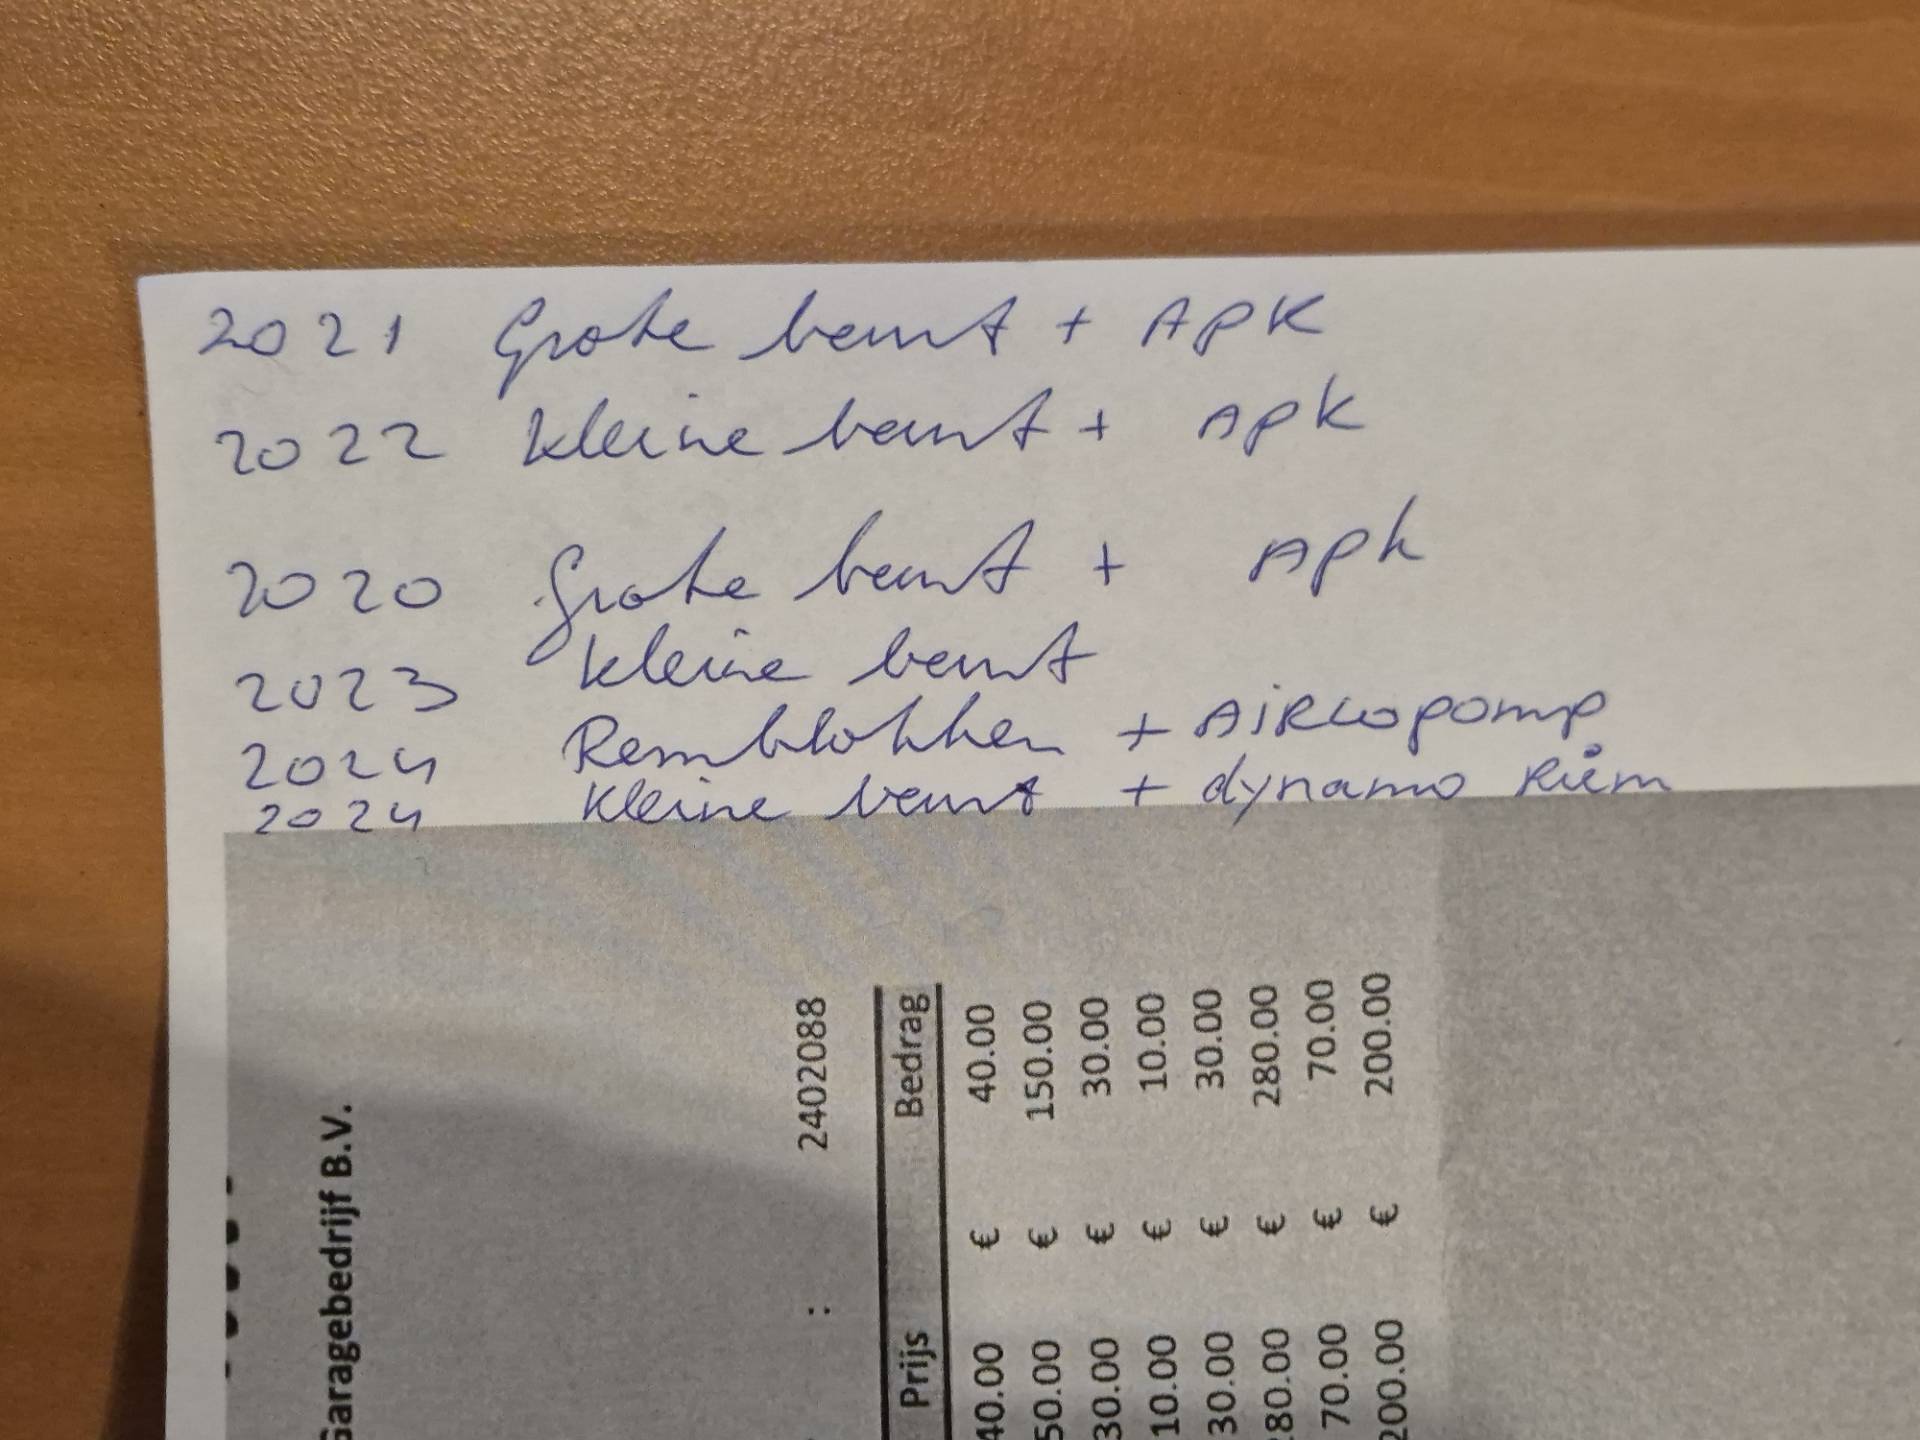 2021 Grote beurt + APK
2022 kleine beurt + APK
2020 Grote beurt + APk
2023 kleine beurt
2024 Remblokken + AiRcopomp
2024 kleine beurt + dynamo Riem
Garagebedrijf B.V.
: 2402088
Prijs Bedrag
40.00 € 40.00
50.00 € 150.00
30.00 € 30.00
10.00 € 10.00
30.00 € 30.00
280.00 € 280.00
70.00 € 70.00
200.00 € 200.00